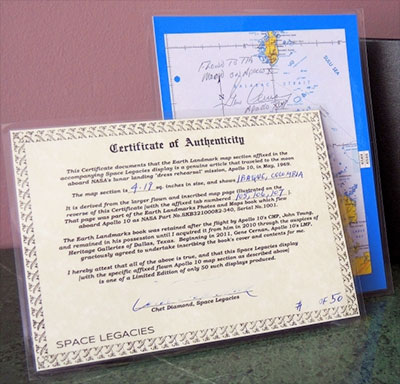 FLOWN TO THE
MOON ON APOLLO X
Gene Cernan
Apollo X LMP
SULU SEA
Certificate of Authenticity
This Certificate documents that the Earth Landmark map section affixed in the
accompanying Space Legacies display is a genuine article that traveled to the moon
aboard NASA's lunar landing "dress rehearsal" mission, Apollo 10, in May, 1969.
The map section is 4.17 sq. inches in size, and shows IBAGUE, COLOMBIA
It is derived from the larger flown and inscribed map page illustrated on the
reverse of this Certificate (with the affixed tab numbered 105, 106, 107).
That page was part of the Earth Landmarks Photos and Maps book which flew
aboard Apollo 10 as NASA Part No.SKB32100082-340, Serial No.1001.
The Earth Landmarks book was retained after the flight by Apollo 10's CMP, John Young,
and remained in his possession until I acquired it from him in 2010 through the auspices of
Heritage Galleries of Dallas, Texas. Beginning in 2011, Gene Cernan, Apollo 10's LMP,
graciously agreed to undertake inscribing the book's cover and contents for me.
I hereby attest that all of the above is true, and that this Space Legacies display
(with the specific affixed flown Apollo 10 map section as described above)
is one of a Limited Edition of only 50 such displays produced.
Chet Diamond, Space Legacies
SPACE LEGACIES
# OF 50